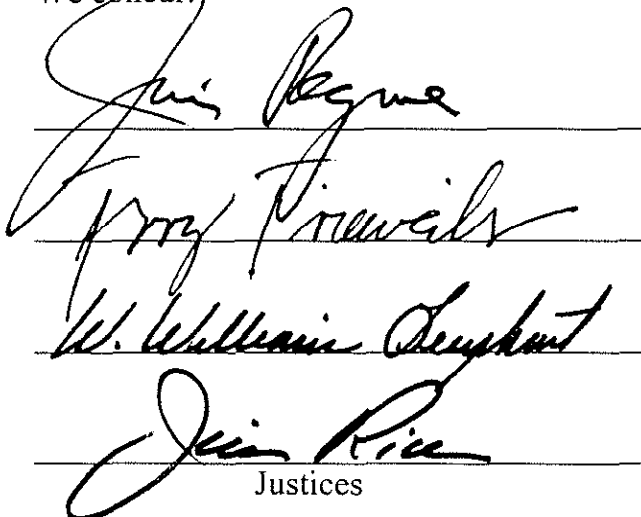 We concur:
Jim Regnier
Terry Trieweiler
W. William Leaphart
Jim Rice
Justices